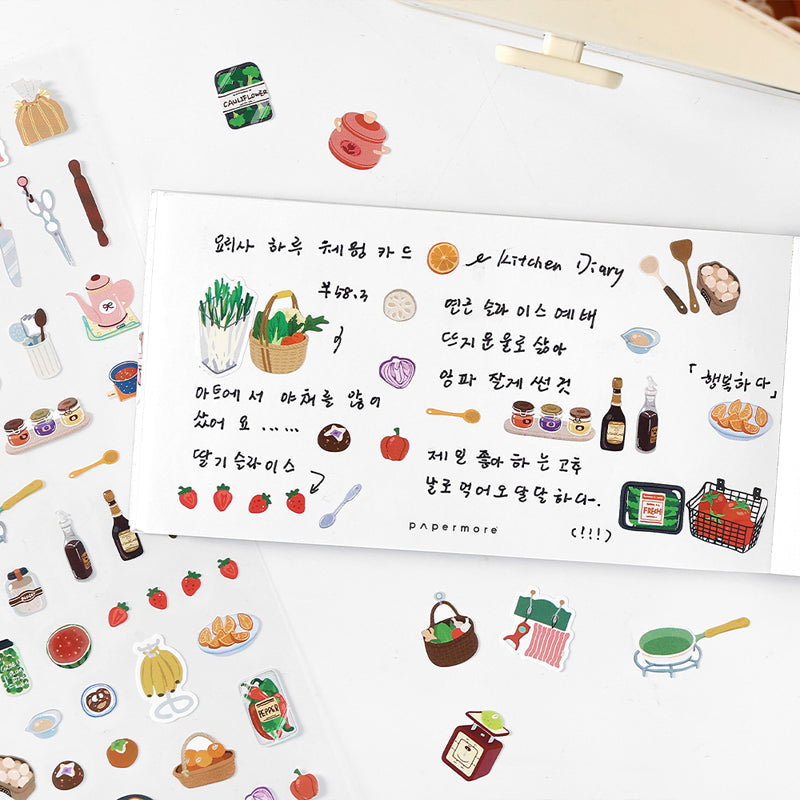 CAULIFLOWER
요리사 하루 웨웡 카드 & Kitchen Diary
연근 슬라이스 예배
뜨지운울로 삶아
양파 잘게 썬 것
「행복하다」
마트에서 야채를 많이
샀어요......
딸기슬라이스
제일 좋아하는고추
날로먹어오달달하다~.
(!!!)
FRESH
papermore
PEPPER